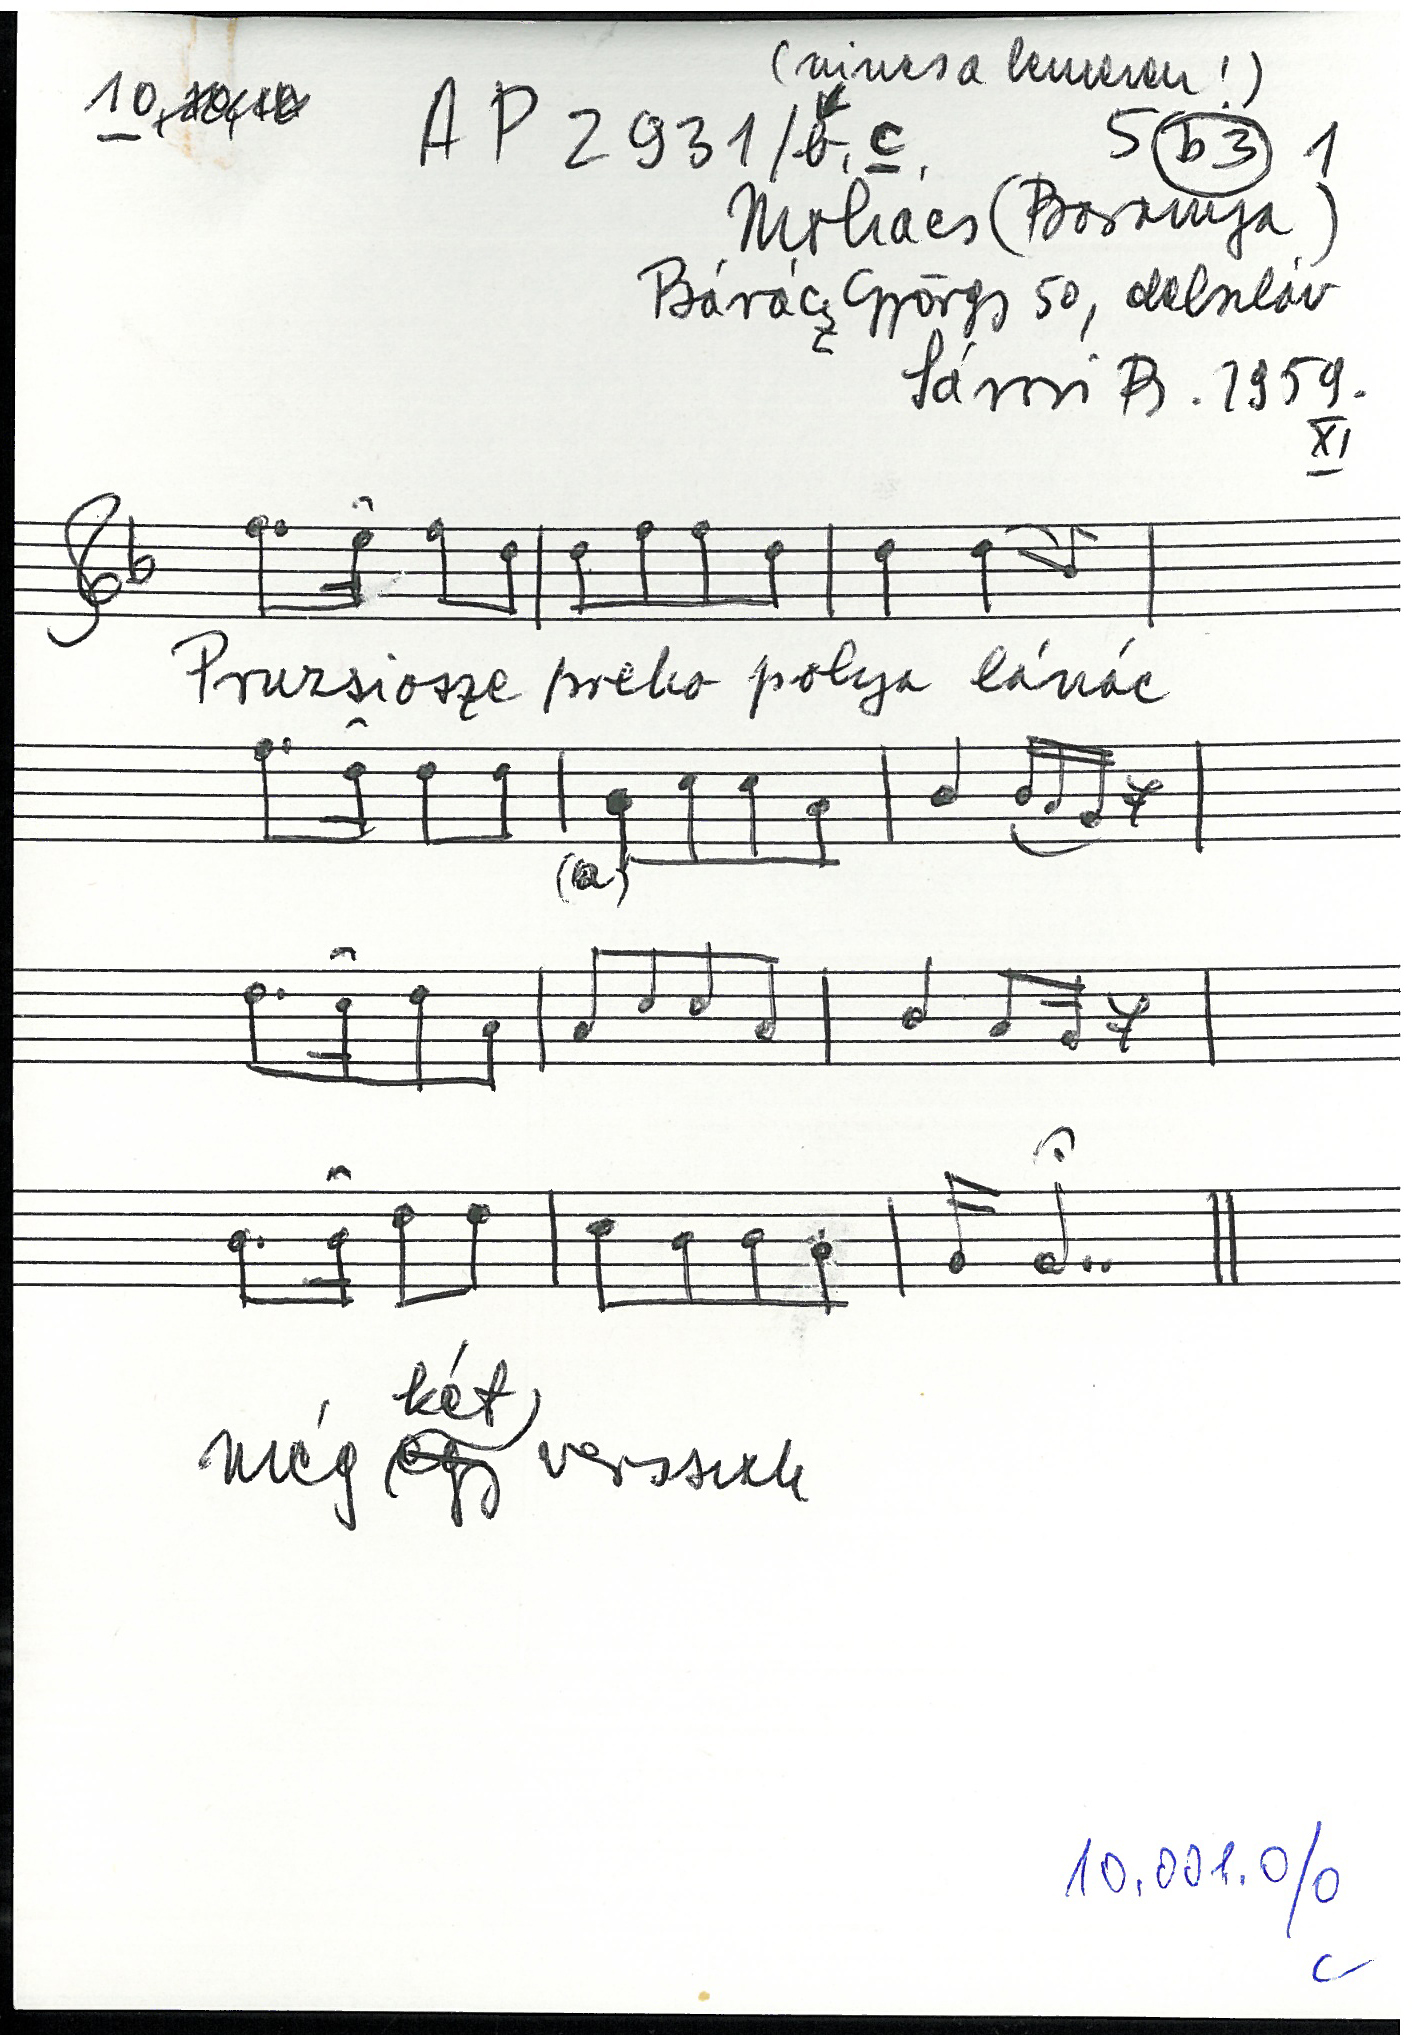 (nincs a lemezen!)
10.
AP 2931/b, c, 5 b3 1
Mohács (Baranya)
Bárácz György 50, délszláv
Sárosi B. 1959.
XI
Pruzsiosze preko polya lánác
(a)
még két versszak
10.001.0/0
c